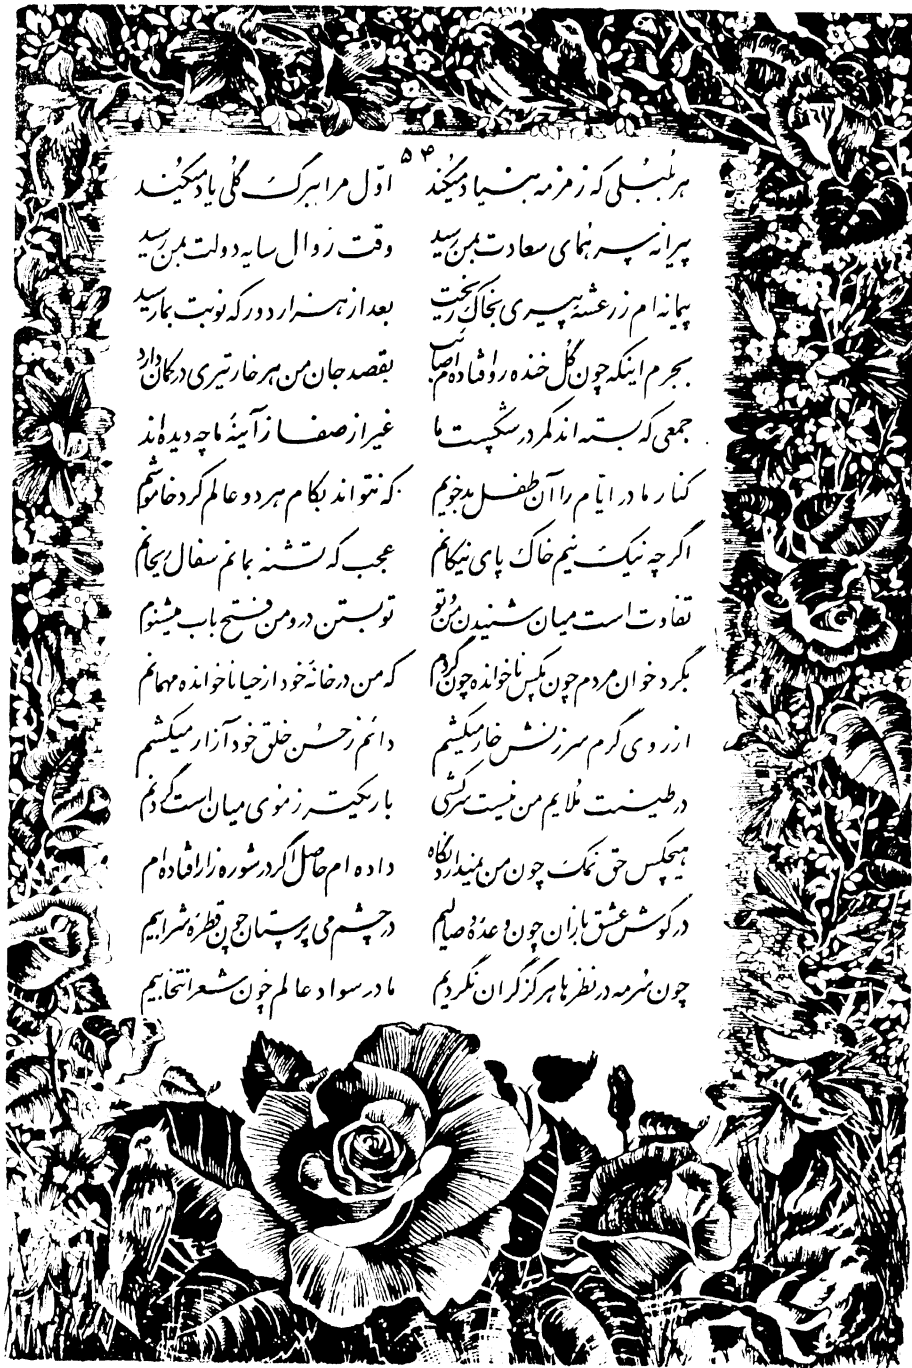 ۵۴
هر بلبلی که زمزمه بنیاد میکند اوّل مرا ببرگ گلی یاد میکند
پیرانه سر همای سعادت بمن رسید وقت زوال سایه دولت بمن رسید
پیمانه ام ز رعشه پیری بخاک ریخت بعد از هزار دور که نوبت بما رسید
بجرم اینکه چون گل خنده رو افتاده‌ام صائب بقصد جان من هر خار تیری در کمان دارد
جمعی که بسته اند کمر در شکست ما غیر از صفا ز آینهٔ ما چه دیده اند
کنار مادر ایام را آن طفل بدخویم که نتواند بکام هر دو عالم کرد خاموشم
اگر چه نیک نیم خاک پای نیکانم عجب که تشنه بمانم سفال ریحانم
تفاوت است میان شنیدن من و تو تو بستن در و من فتح باب میشنوم
بگرد خوان مردم چون مگس ناخوانده چون گردم که من در خانهٔ خود از حیا ناخوانده مهمانم
از روی گرم سرزنش خار میکشم دائم ز حسن خلق خود آزار میکشم
در طینت ملایم من نیست سرکشی باریکتر ز موی میان است گردنم
هیچکس حق نمک چون من نمیدارد نگاه داده ام حاصل اگر در شوره زار افتاده ام
در گوش عشق بازان چون وعدهٔ وصالیم در چشم می پرستان چون قطره شرابیم
چون سرمه در نظرها هرگز گران نگردیم ما در سواد عالم چون شعر انتخابیم